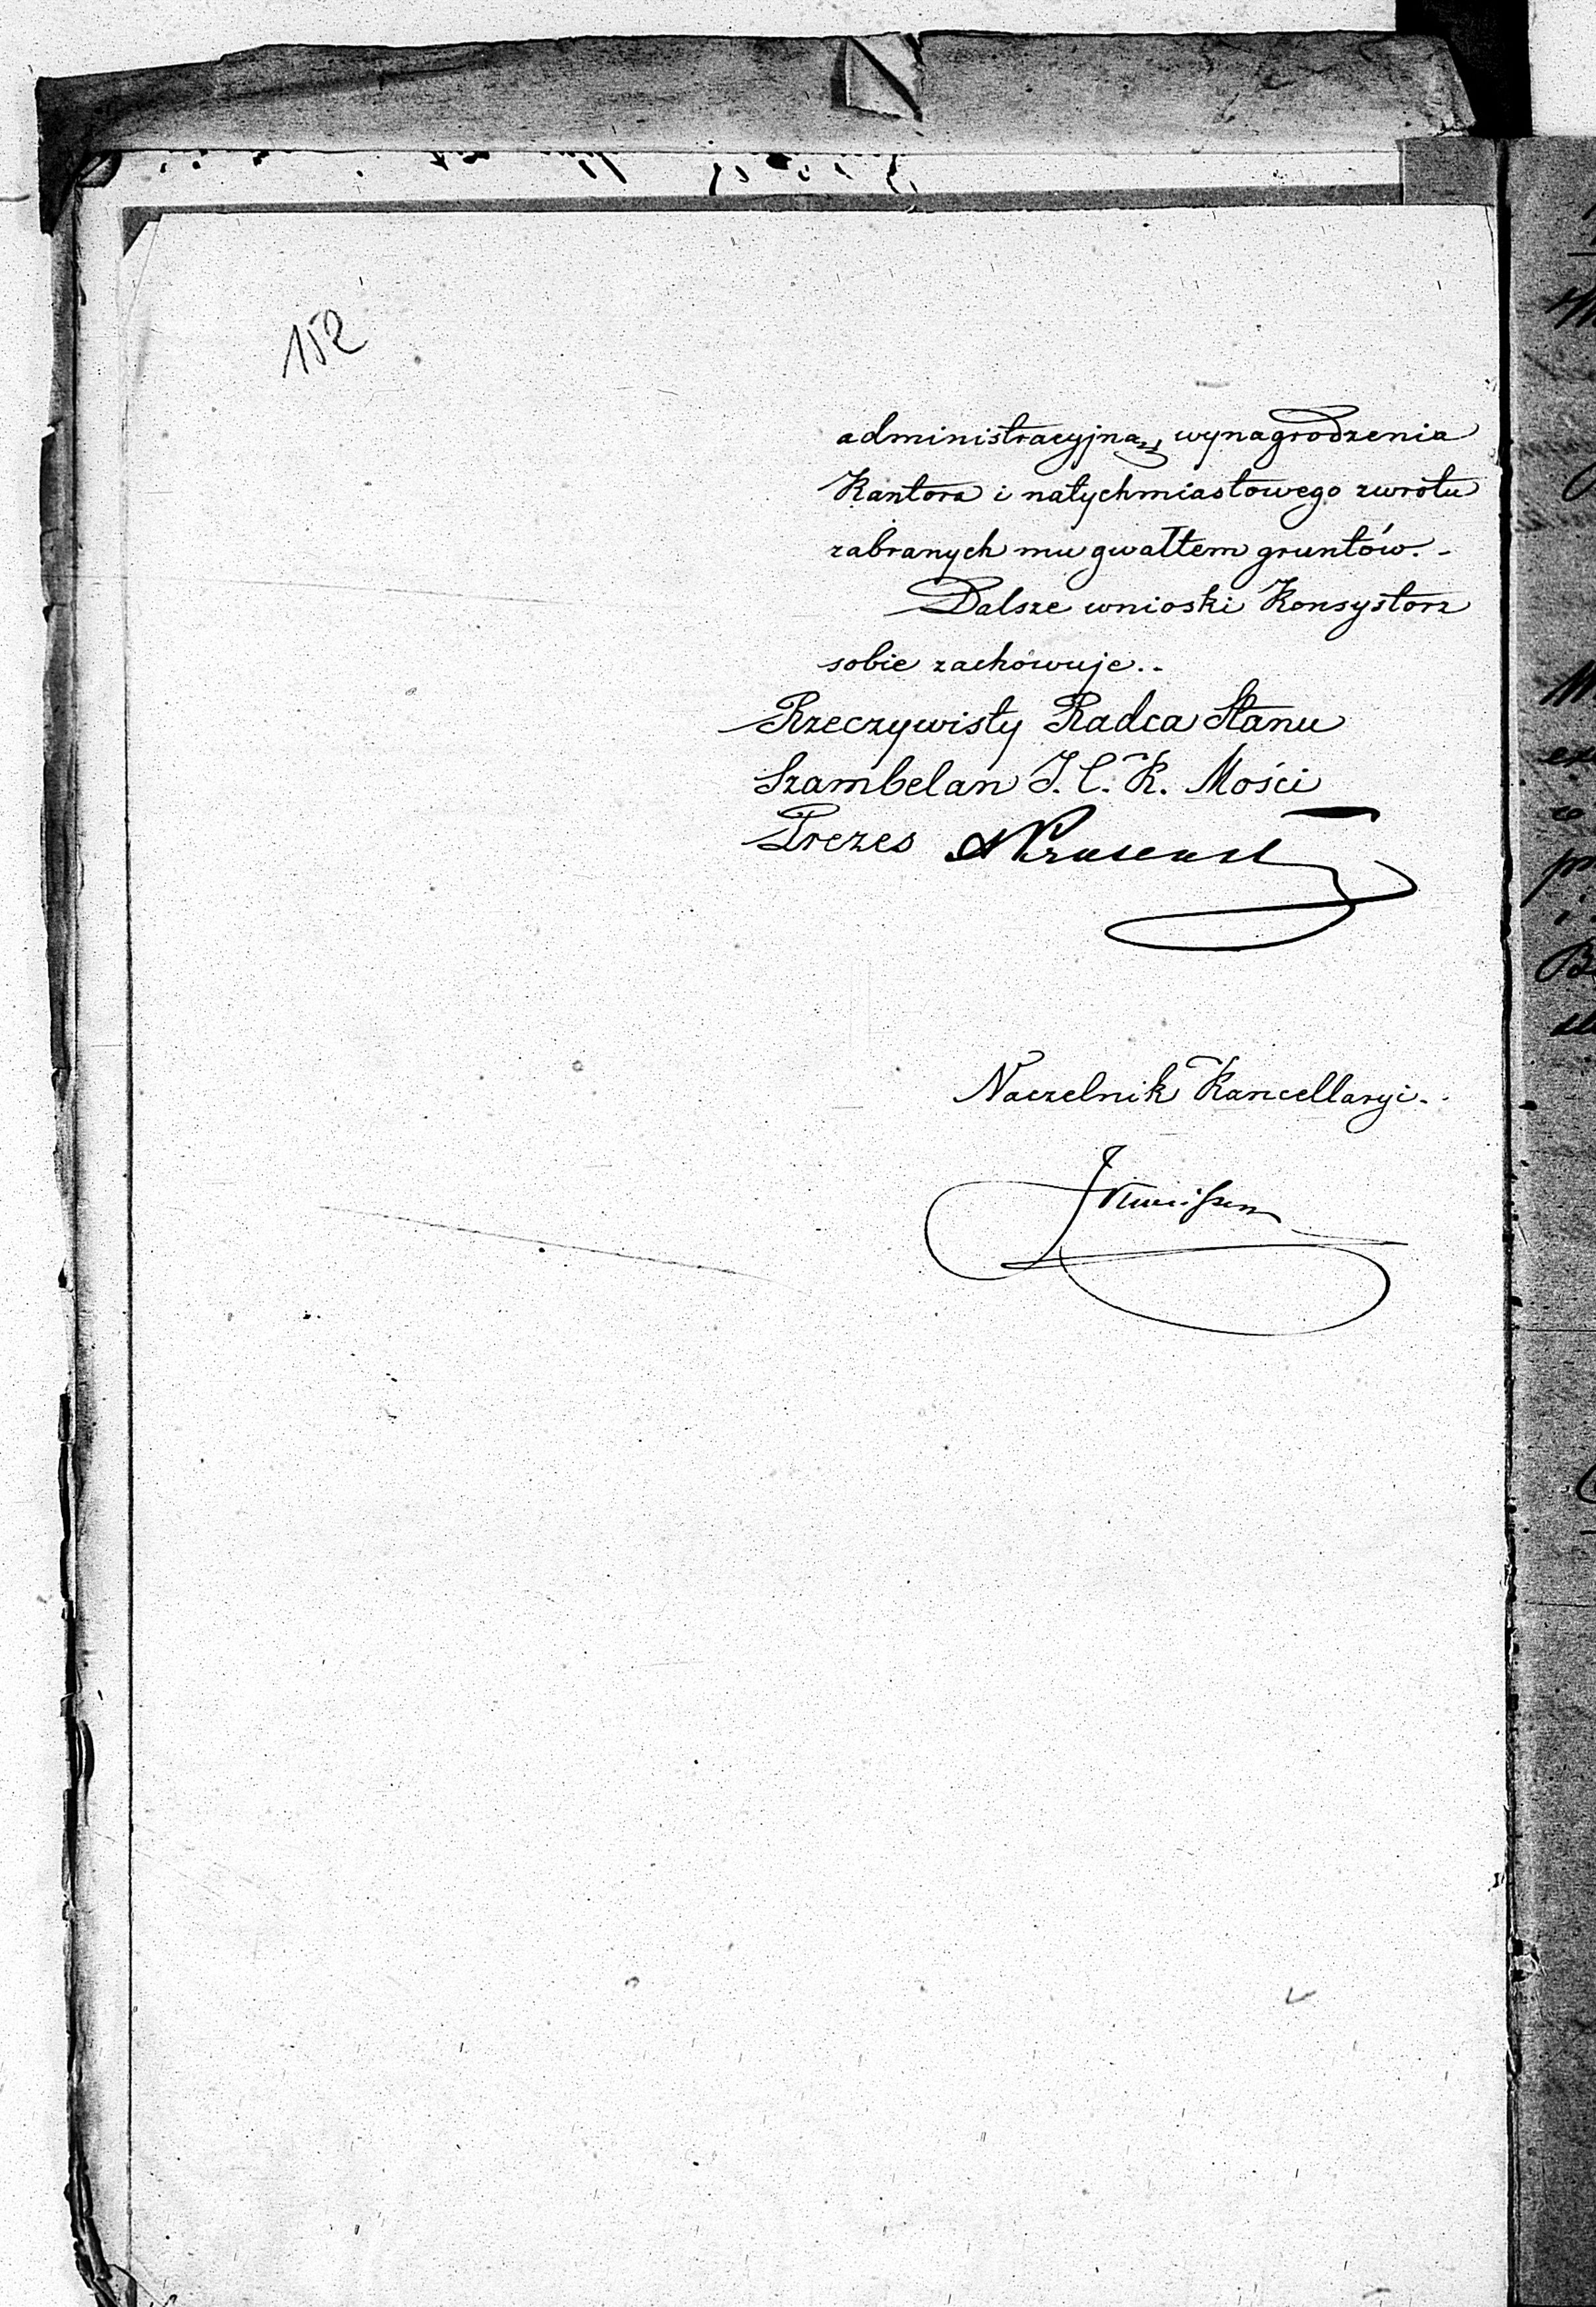 152
administracyjną, wynagrodzenia
Kantora i natychmiastowego zwrotu
zabranych mu gwałtem gruntów. -
Dalsze wnioski Konsystorz
sobie zachowuje. -
Rzeczywisty Radca Stanu
Szambelan J. C. K. Mości
Prezes
Naczelnik Kancellaryi. -